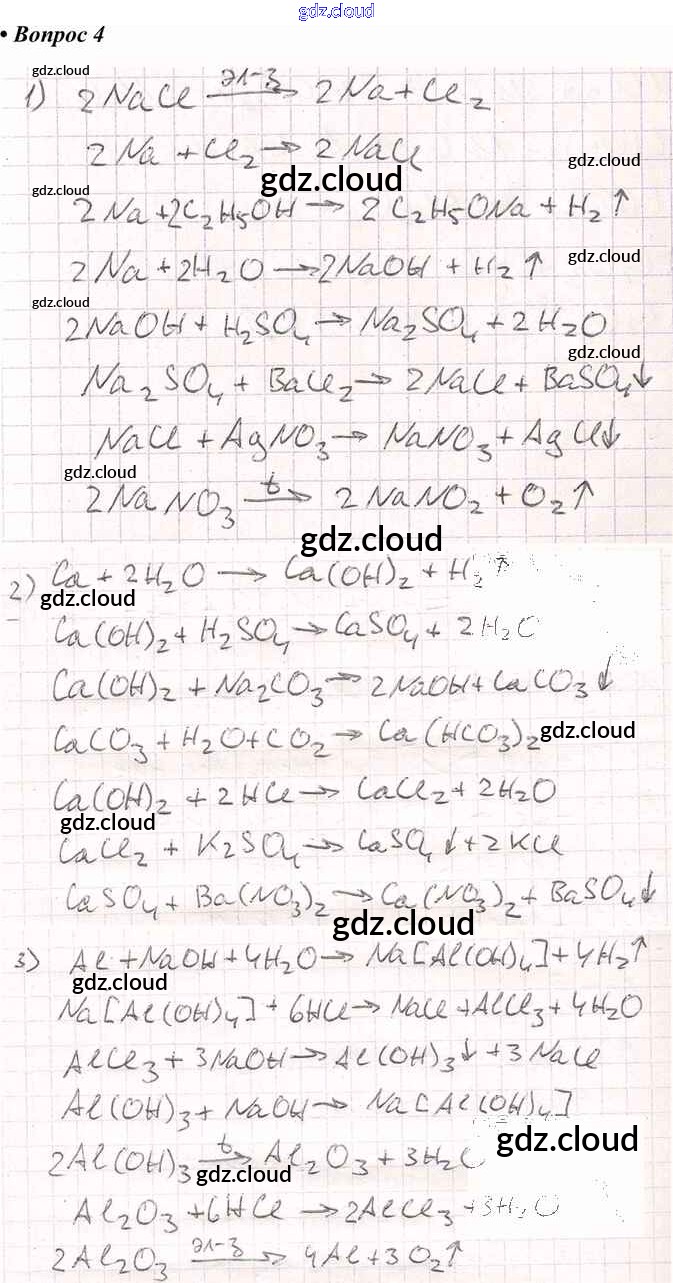 gdz.cloud
• Вопрос 4
gdz.cloud
1) 2NaCl эл-з→ 2Na + Cl₂
2Na + Cl₂ → 2NaCl
gdz.cloud
gdz.cloud
2Na + 2C₂H₅OH → 2C₂H₅ONa + H₂↑
2Na + 2H₂O → 2NaOH + H₂↑
gdz.cloud
gdz.cloud
2NaOH + H₂SO₄ → Na₂SO₄ + 2H₂O
gdz.cloud
Na₂SO₄ + BaCl₂ → 2NaCl + BaSO₄↓
NaCl + AgNO₃ → NaNO₃ + AgCl↓
gdz.cloud
2NaNO₃ t→ 2NaNO₂ + O₂↑
gdz.cloud
2) Ca + 2H₂O → Ca(OH)₂ + H₂↑
gdz.cloud
Ca(OH)₂ + H₂SO₄ → CaSO₄ + 2H₂O
Ca(OH)₂ + Na₂CO₃ → 2NaOH + CaCO₃↓
CaCO₃ + H₂O + CO₂ → Ca(HCO₃)₂
gdz.cloud
Ca(OH)₂ + 2HCl → CaCl₂ + 2H₂O
gdz.cloud
CaCl₂ + K₂SO₄ → CaSO₄↓ + 2KCl
CaSO₄ + Ba(NO₃)₂ → Ca(NO₃)₂ + BaSO₄↓
gdz.cloud
3) Al + NaOH + 4H₂O → Na[Al(OH)₄] + 4H₂↑
Na[Al(OH)₄] + 6HCl → NaCl + AlCl₃ + 4H₂O
AlCl₃ + 3NaOH → Al(OH)₃↓ + 3NaCl
Al(OH)₃ + NaOH → Na[Al(OH)₄]
gdz.cloud
2Al(OH)₃ t→ Al₂O₃ + 3H₂O
gdz.cloud
Al₂O₃ + 6HCl → 2AlCl₃ + 3H₂O
2Al₂O₃ эл-з→ 4Al + 3O₂↑